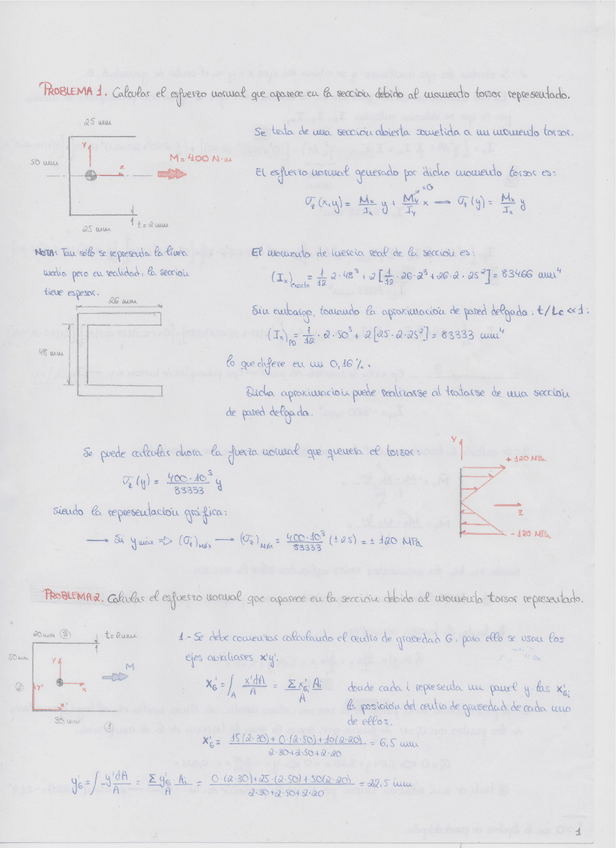 PROBLEMA 1. Calcular el esfuerzo normal que aparece en la sección debido al momento torsor representado.
25 mm
50 mm
Y
x
M=400 N·m
25 mm
t=2mm
Se trata de una sección abierta sometida a un momento torsor.
El esfuerzo normal generado por dicho momento torsor es:
σz (x,y) = Mx/Ix y + My/Iy x → σz (y) = Mx/Ix y
=0
NOTA: Tan sólo se representa la línea
media pero en realidad, la sección
tiene espesor.
26 mm
48 mm
El momento de inercia real de la sección es:
= 1/12 2·48³ + 2[1/12 ·26·2³ + 26·2·25²] = 83466 mm⁴
Sin embargo, tomando la aproximación de pared delgada, t/Lc <<1:
(Ix)PD = 1/12 · 2·50³ + 2[25·2·25²] = 83333 mm⁴
lo que difiere en un 0,16%.
Dicha aproximación puede realizarse al tratarse de una sección
de pared delgada.
Se puede calcular ahora la fuerza normal que genera el torsor:
σz (y) = 400·10³/83333 y
Siendo la representación gráfica:
→ Si ymáx => (σz)Máx → (σz)Máx = 400·10³/83333 (±25) = ±120 MPa
Y
+120 MPa
z
-120 MPa
PROBLEMA 2. Calcular el esfuerzo normal que aparece en la sección debido al momento torsor representado.
20mm ③
t=2mm
50mm
②
M
30mm
①
1 - Se debe comenzar calculando el centro de gravedad G, para ello se usan los
ejes auxiliares x'y'.
X'G = ∫A x'dA/A = Σ x'Gi Ai/A
donde cada i representa un panel y las x'Gi
la posición del centro de gravedad de cada uno
de ellos.
X'G = 15(2·30)+0·(2·50)+10(2·20)/2·30+2·50+2·20 = 6,5 mm
y'G = ∫ y'dA/A = Σ y'Gi · Ai/A = 0·(2·30)+25·(2·50)+50(2·20)/2·30+2·50+2·20 = 22,5 mm
1